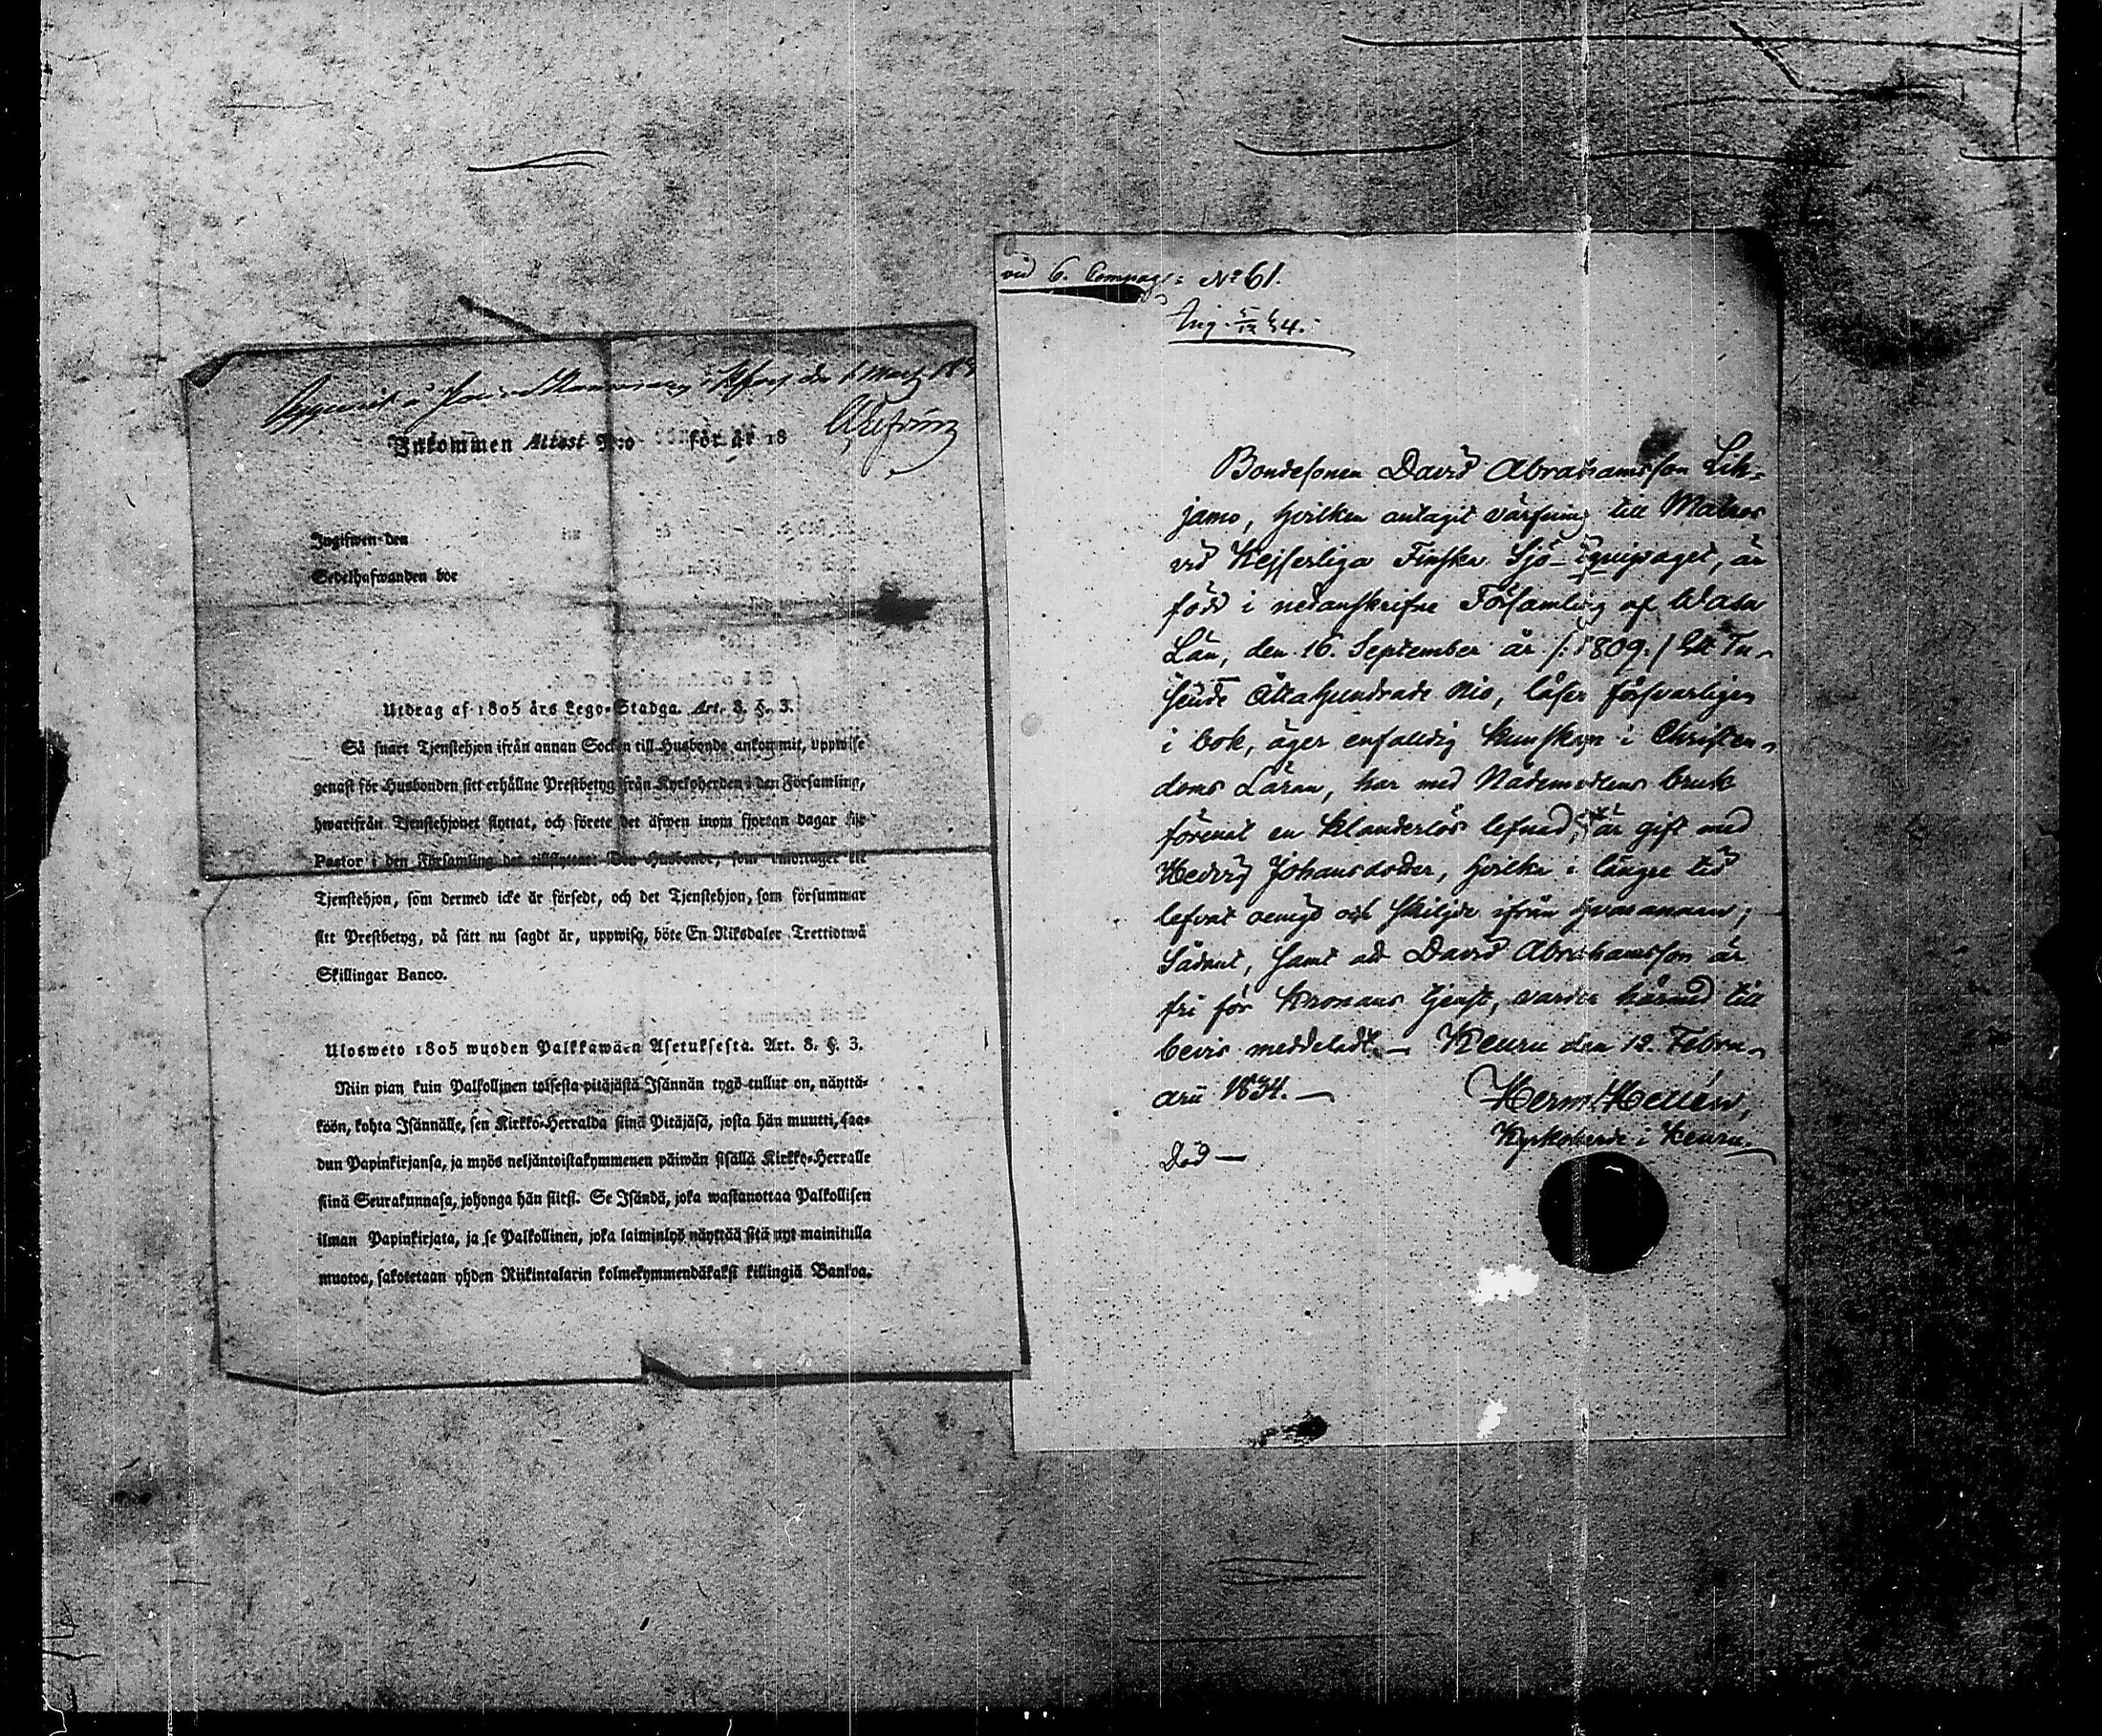 Uppvist i Poliskammaren i Hfors den 1 Martz 183
Inkommen Attest N:o för år 18
Ingifwen den
Sedelhafwanden bör
Utdrag af 1805 års Lego-Stadga. Art. 8. §. 3.
Så snart Tjenstehjon ifrån annan Socken till Husbonde ankommit, uppwise
genast för Husbonden sitt erhållne Prestbetyg från Kyrkoherden i den Församling,
hwarifrån Tjenstehjonet flyttat, och förete det äfwen inom fjortan dagar för
Pastor i den Församling det tillflyttar: Den Husbonde, som emottager ett
Tjenstehjon, som dermed icke är försedt, och det Tjenstehjon, som försummar
sitt Prestbetyg, på sätt nu sagdt är, uppwisa, böte En Riksdaler Trettiotwå
Skillingar Banco.
Ulosweto 1805 wuoden Palkkawäen Asetuksesta. Art. 8. §. 3.
Niin pian kuin Palkollinen toisesta pitäjästä Isännän tygö tullut on, näyttä-
köön, kohta Isännälle, sen Kirkko-Herralda siinä Pitäjäsä, josta hän muutti, saa-
dun Papinkirjansa, ja myös neljäntoistakymmenen päiwän sisällä Kirkko-Herralle
siinä Seurakunnasa, johonga hän siirsi. Se Isändä, joka wastanottaa Palkollisen
ilman Papinkirjata, ja se Palkollinen, joka laiminlyö näyttää sitä nyt mainitulla
muotoa, sakotetaan yhden Riikintalarin kolmekymmendäkaksi killingiä Bankoa.
vid 6. Compagn: No 61.
Ing. 5/12 34.
Bondesonen David Abrahamsson Lih-
jamo, hvilken antagit värfning till Matros
vid Kejserliga Finska Sjö-Equipaget, är
född i nedanskrifne Församling af Wasa
Län, den 16. September år /:1809./ Ett Tu-
sende Åttahundrade Nio, läser försvarligen
i bok, äger enfaldig kunskap i Christen-
doms Läran, har med Nådemedlens bruk
förenat en klanderlös lefnad, är gift med
Hedvig Johansdotter, hvilka i längre tid
lefvat oenige och skiljde ifrån hvarannan;
Sådant, samt att David Abrahamsson är
fri för Kronans tjenst, varder härmed till
bevis meddeladt. — Keuru den 12. Febru-
arii 1834. —
Herm. Hellén,
Kyrkoherde i Keuru.
Död —